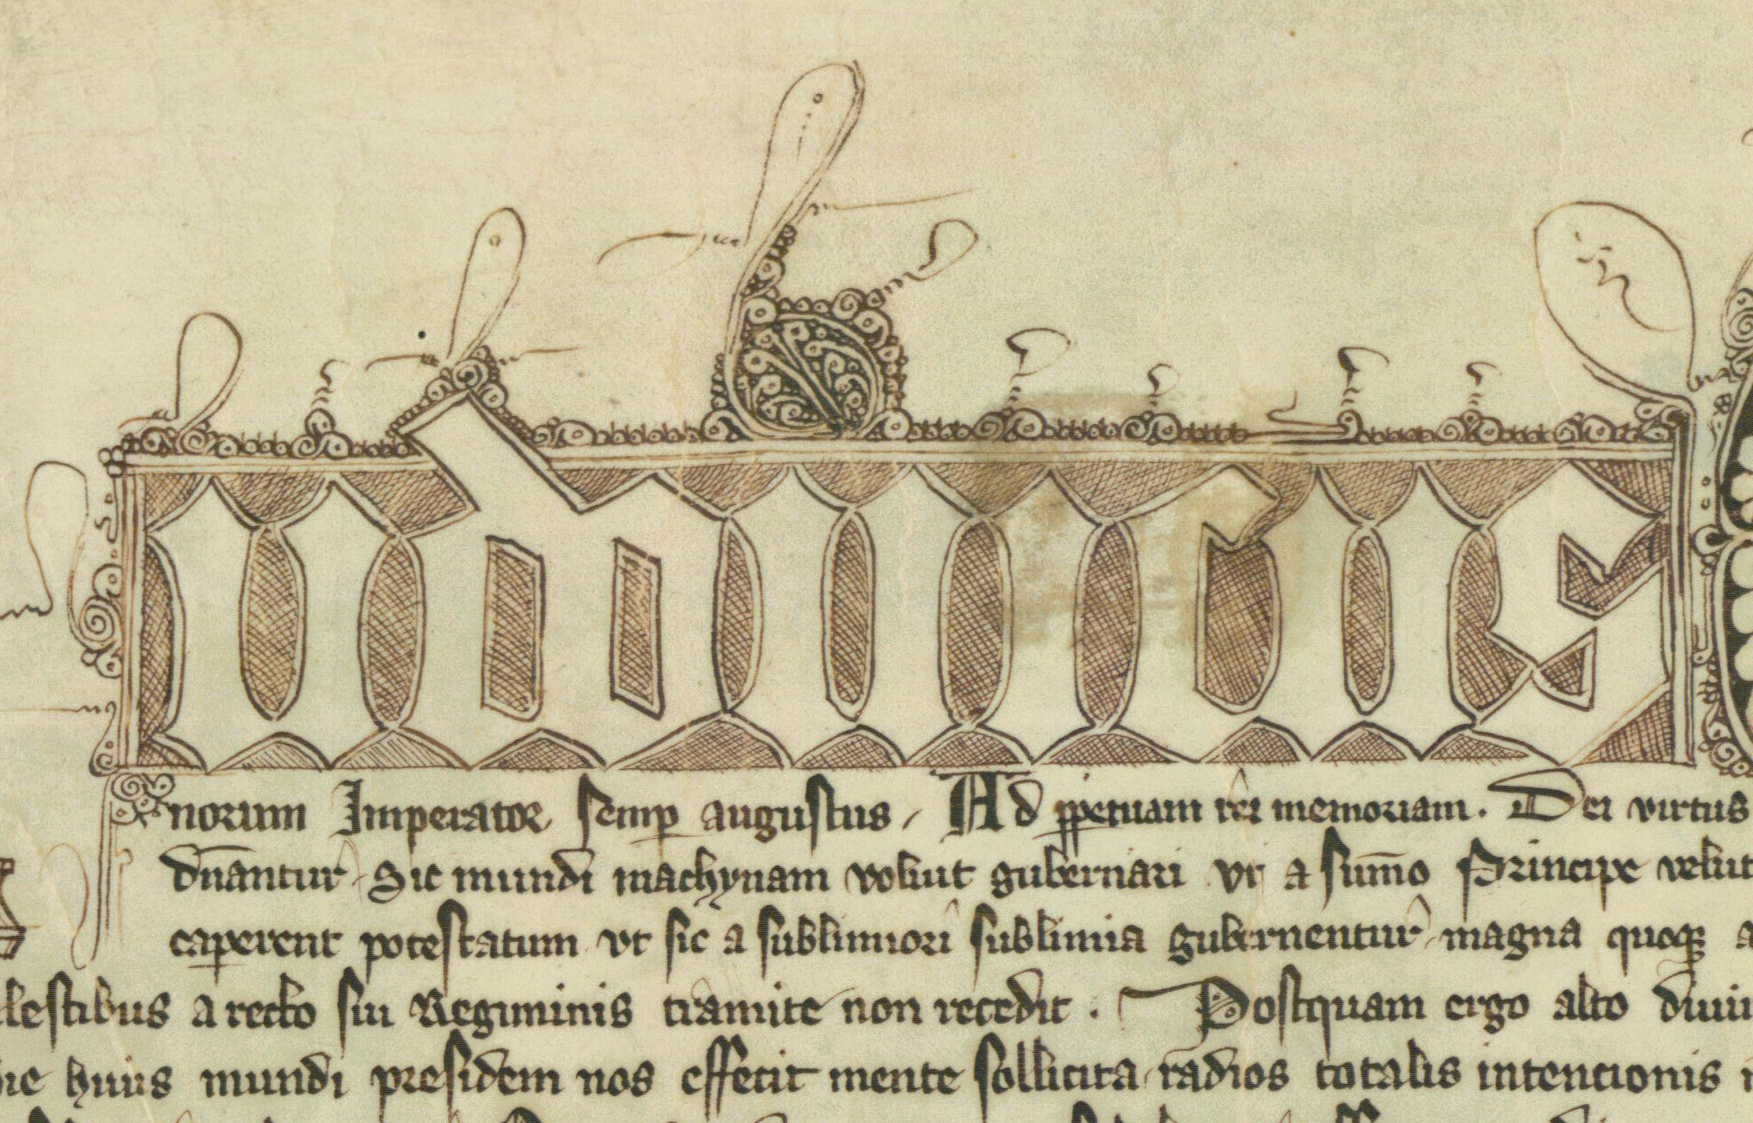 udouicus
norum Imperator semp augustus / Ad ppetuam rei memoriam. Dei virtus
dn̄antur Sic mundi machynam voluit gubernari vt a sum̄o Principe velut
caperent potestatum vt sic a sublimiori sublimia gubernentur magna quoqꝫ
lestibus a recto sui Regiminis tramite non recedit . Postquam ergo alto
huius mundi presidem nos effecit mente sollicita radios totalis intencionis